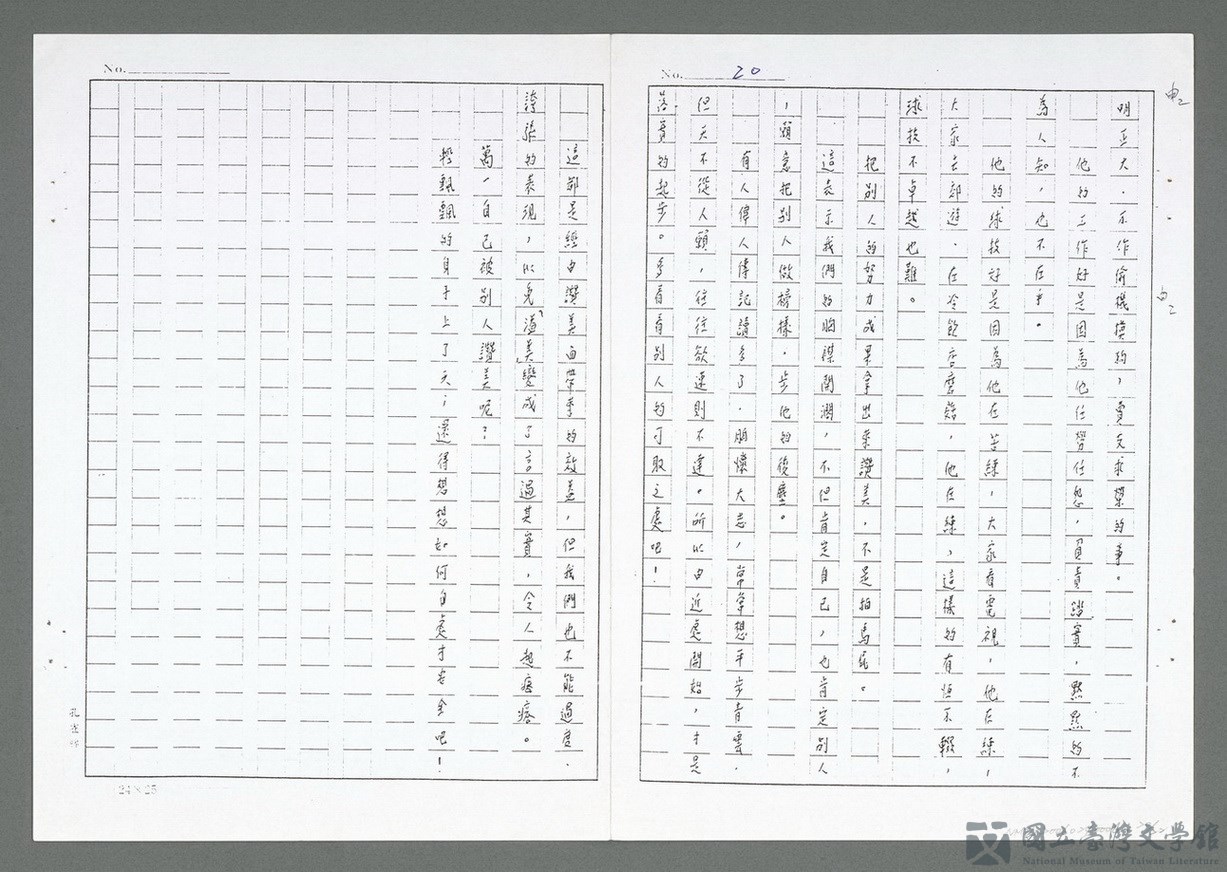 No. 20
明正大．不作偷機摸約，賣友求榮的事。
他的工作好是因為他任勞任怨．負責踏實．默默的不
為人知，也不在乎。
他的球技好是因為他在苦練，大家看電視，他在練，
大家去郊遊．在冷飲店磨菇．他在練，這樣的有恒不輟，
球技不卓越也難。
把別人的努力成果拿出來讚美．不是拍馬屁。
這表示我們的胸襟開濶，不但肯定自己，也肯定別人
，願意把別人做榜樣．步他的後塵。
有人偉人傳記讀多了．胸懷大志，常常想平步青雲．
但天不從人願，往往欲速則不達。所以由近處開始，才是
落實的起步。多看看別人的可取之處吧！
No.
這都是經由讚美而帶來的效益，但我們也不能過度．
誇張的表現，以免溢美變成了言過其實，令人起疙瘩。
萬一自己被別人讚美呢？
輕飄飄的身子上了天；還得想想如何自處才安全吧！
24×25
國立臺灣文學館
National Museum of Taiwan Literature